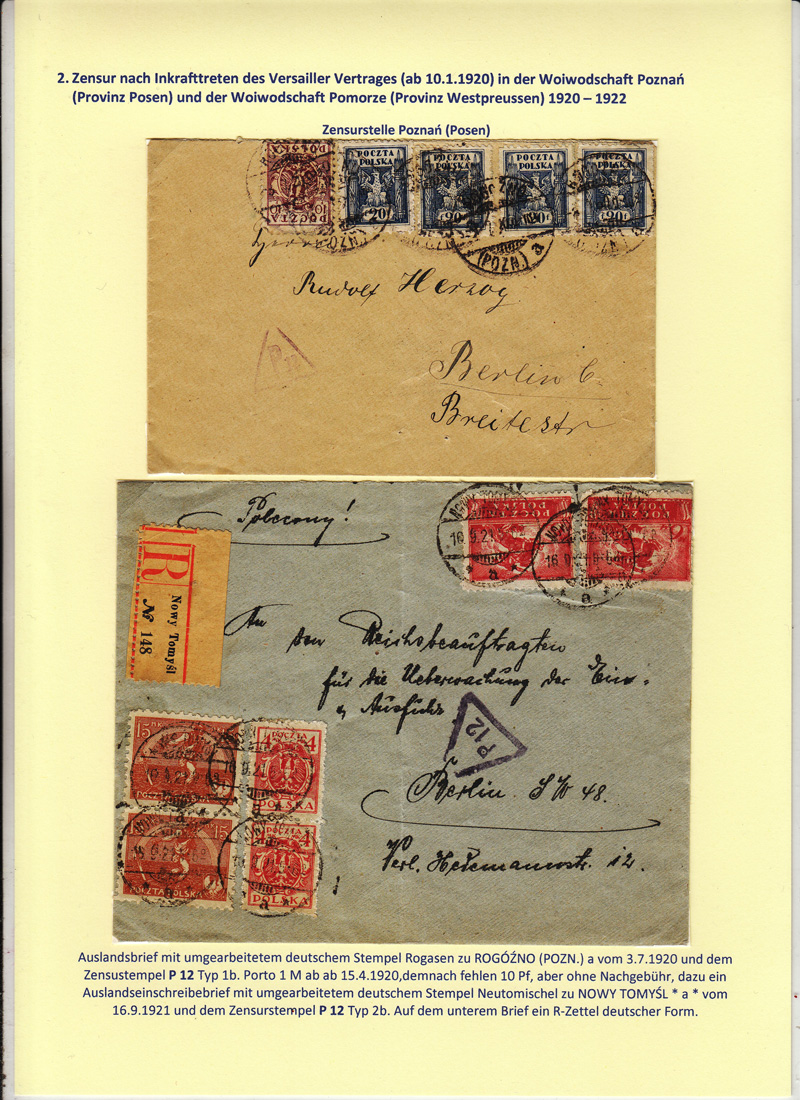 2. Zensur nach Inkrafttreten des Versailler Vertrages (ab 10.1.1920) in der Woiwodschaft Poznań
(Provinz Posen) und der Woiwodschaft Pomorze (Provinz Westpreussen) 1920 – 1922
Zensurstelle Poznań (Posen)
POCZTA POLSKA
10
POCZTA POLSKA
20
POCZTA POLSKA
20
POCZTA POLSKA
20
POCZTA POLSKA
20
(POZN.) a
Herrn
Rudolf Herzog
P 12
Berlin C.
Breitestr
Polecony!
16.9.21
16.9.21
a
R
Nowy Tomyśl
№ 148
An
den Reichsbeauftragten
für die Ueberwachung der Ein-
u. Ausfuhr
P 12
Berlin SW 48.
Verl. Hedemannstr. 12.
15
POCZTA POLSKA
4 POCZTA 4
POLSKA
15
POCZTA POLSKA
4 POCZTA 4
POLSKA
Auslandsbrief mit umgearbeitetem deutschem Stempel Rogasen zu ROGÓŹNO (POZN.) a vom 3.7.1920 und dem
Zensustempel P 12 Typ 1b. Porto 1 M ab ab 15.4.1920,demnach fehlen 10 Pf, aber ohne Nachgebühr, dazu ein
Auslandseinschreibebrief mit umgearbeitetem deutschem Stempel Neutomischel zu NOWY TOMYŚL * a * vom
16.9.1921 und dem Zensurstempel P 12 Typ 2b. Auf dem unterem Brief ein R-Zettel deutscher Form.